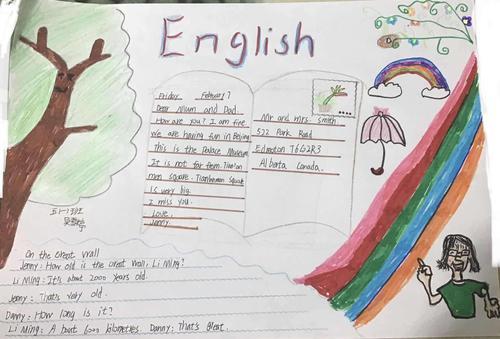 English
Friday February 7
Dear Mum and Dad.
How are you? I am fine.
We are having fun in Beijing
This is the Palace Museum
It is not far from Tian'an
men square. Tiananmen Square
is very big.
I miss you.
Love.
Jenny.
Mr and mrs. smith
522 Park Road
Edmoton T6G2R3
Alberta Canada.
On the Great Wall
Jenny: How old is the Great Wall, Li Ming?
Li Ming: It's about 2000 years old.
Jenny: That's very old.
Danny: How long is it?
Li Ming: A bout 6000 kilometres. Danny: That's great.